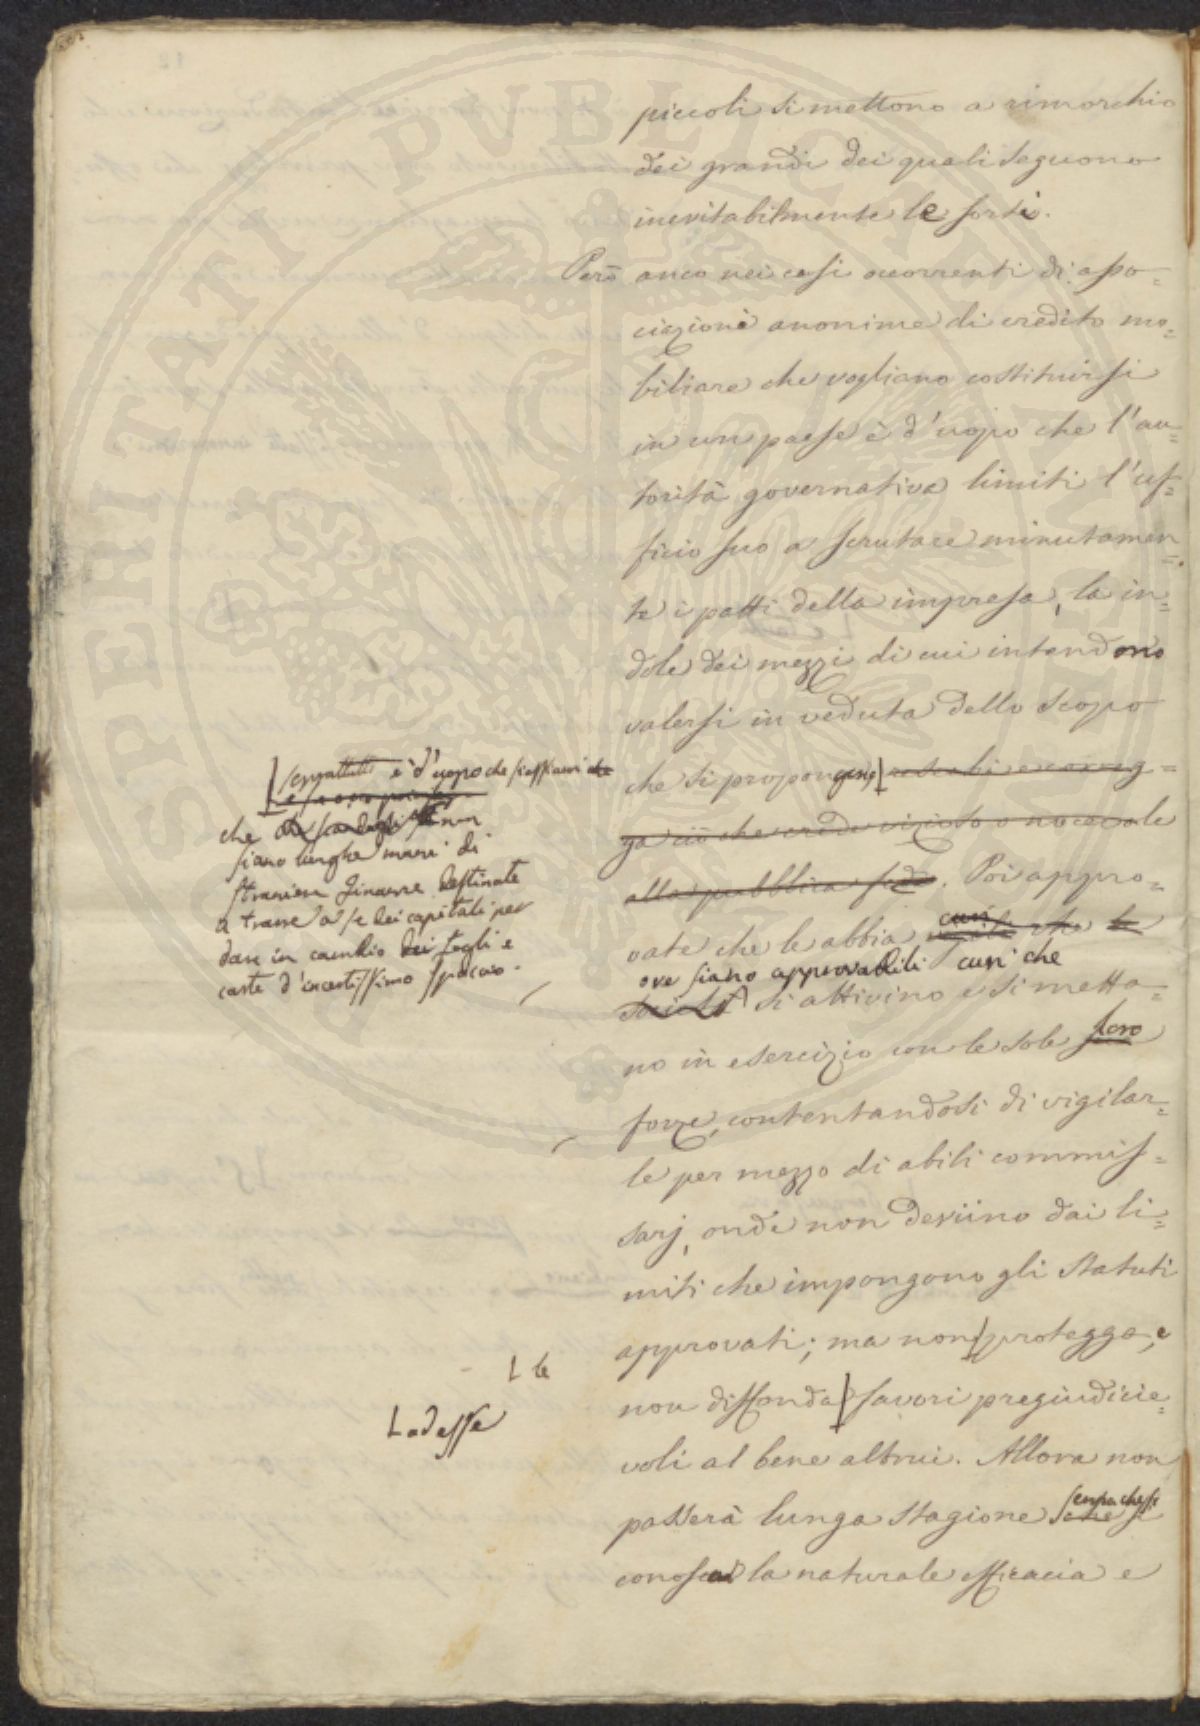 piccoli si mettono a rimorchio
dei grandi dei quali seguono
inevitabilmente le sorti.
Però anco nei casi occorrenti di asso=
ciazioni anonime di credito mo=
biliare che vogliano costituirsi
in un paese è d'uopo che l'au=
torità governativa limiti l'uf=
ficio suo a scrutare minutamen=
te i patti della impresa, la in=
dole dei mezzi di cui intendono
valersi in veduta dello scopo
che si propongono, resechi e correg=
ga ciò che crede vizioso o nocevole
alla pubblica fede. Poi appro=
vate che le abbia curi
ove siano approvabili curi che
società si attivino e si metta=
no in esercizio con le sole loro
forze, contentandosi di vigilar=
le per mezzo di abili commis=
sarj, onde non deviino dai li=
miti che impongono gli Statuti
approvati; ma non protegga, e
non diffonda favori pregiudicie=
voli al bene altrui. Allora non
passerà lunga stagione senza che si
conosca la naturale efficacia e
soprattutto è d'uopo che si assicuri che
che non
siano lunghe mani di
straniera finanza destinate
a trarre a se dei capitali per
dare in cambio dei fogli e
carte d'incertissimo spaccio.
le
adesse
SPERITATI PVBLICE